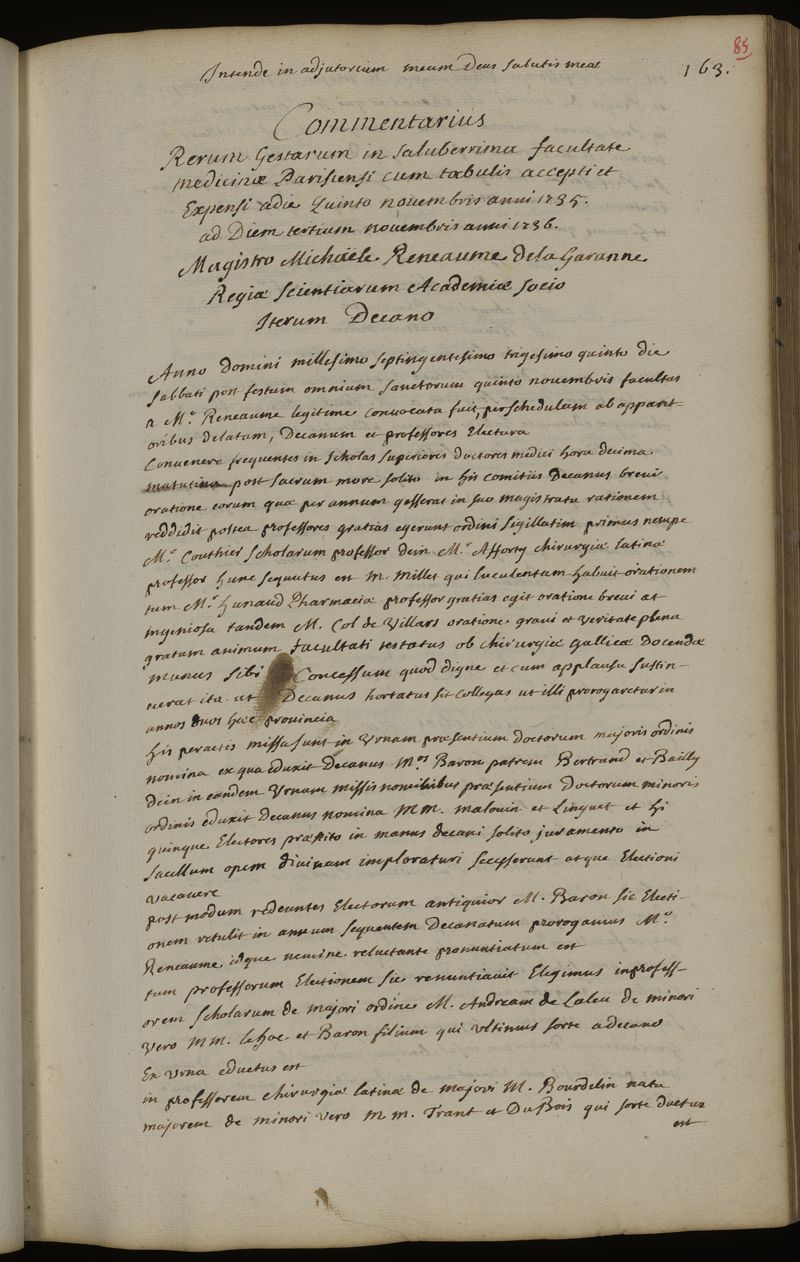 85
Intende in adjutorium meum Deus salutis meae
163.
Commentarius
Rerum Gestarum in saluberrima facultate
medicinae Parisiensi cum tabulis accepti et
Expensi a die Quinto novembris anni 1735.
ad Diem tertium novembris anni 1736.
Magistro Michaele Reneaume de la Garanne
Regiae scientiarum Academiae socio
Iterum Decano
Anno domini millesimo septingentesimo trigesimo quinto die
sabbati post festum omnium sanctorum quinto novembris facultas
a Mo. Reneaume legitime convocata fuit per schedulam ab apparit-
oribus delatam, Decanum et professores Electura
Convenere frequentes in scholas superiores doctores medici hora decima
matutina post sacrum more solito in his comitiis Decanus brevi
oratione eorum quae per annum gesserat in suo magistratu rationem
reddidit postea professores gratias egerunt ordini sigillatim primus nempe
Mr. Couthier scholarum professor dein Mr. Afforty chirurgiae latinae
professor hunc sequutus est M. Millet qui luculentam habuit orationem
tum Mr. Hunaud Pharmaciae professor gratias egit oratione brevi at
ingeniosa tandem M. Col de Villars oratione gravi et veritate plena
gratum animum facultati testatus ob chirurgiae gallicae docendae
munus sibi concessum quod digne et cum applausu sustin-
uerat ita ut Decanus hortatus sit collegas ut illi prorogaretur in
annos duos haec provincia
His peractis missa sunt in Urnam praesentium doctorum majoris ordinis
nomina ex qua eduxit Decanus Mos Baron patrem Bertrand et Bailly
Dein in eandem Urnam missis nominibus praesentium Doctorum minoris
ordinis eduxit Decanus nomina MM. malouin et Linguet et hi
quinque Electores praestito in manus decani solito juramento in
sacellum opem divinam imploraturi secesserunt atque Electioni
vacavere
post modum redeuntes Electorum antiquior M. Baron sic Electi-
onem retulit in annum sequentem Decanatum prorogamus Mo.
Reneaume, idque nemine reluctante pronuntiatum est
tum professorum Electionem sic renuntiavit Elegimus in profess-
orem scholarum de majori ordine M. Andream de Laleu de minori
vero MM. le hoc et Baron filium qui ultimus sorte a decano
Ex urna eductus est
in professorem chirurgiae latinae de majori M. Bourdelin natu
majorem de minori vero M m. Trant et DuBois qui sorte ductus
est